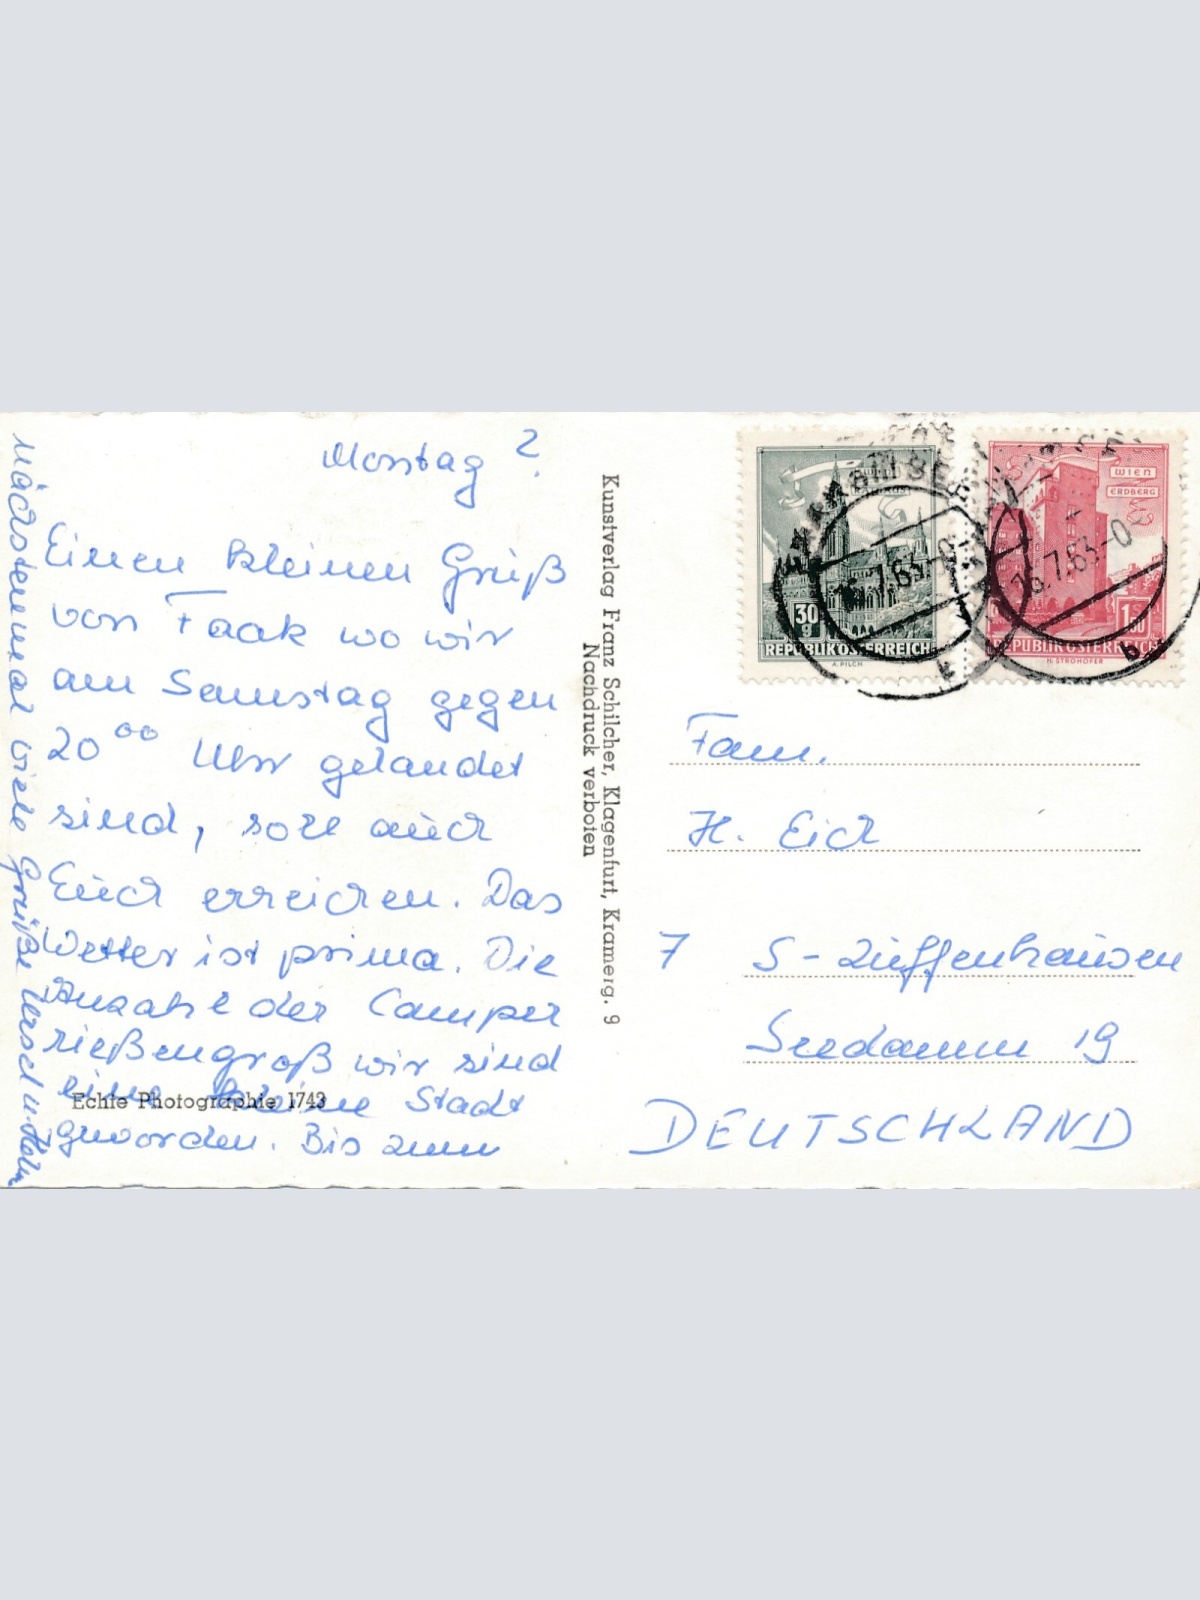 Montag ?
Einen kleinen Gruß
von Faak wo wir
am Samstag gegen
20⁰⁰ Uhr gelandet
sind, soll auch
Euch erreichen. Das
Wetter ist prima. Die
Anzahl der Camper
rießengroß wir sind
eine kleine Stadt
geworden. Bis zum
nächstenmal viele Grüße Ursel u.
Echte Photographie 1743
Kunstverlag Franz Schilcher, Klagenfurt, Kramerg. 9
Nachdruck verboten
30 g
REPUBLIK ÖSTERREICH
A. PILCH
WIEN
ERDBERG
1.50
REPUBLIK ÖSTERREICH
H. STROHOFER
16.7.63-0
b
Fam.
H. Eich
7 S-Zuffenhausen
Seedamm 19
DEUTSCHLAND